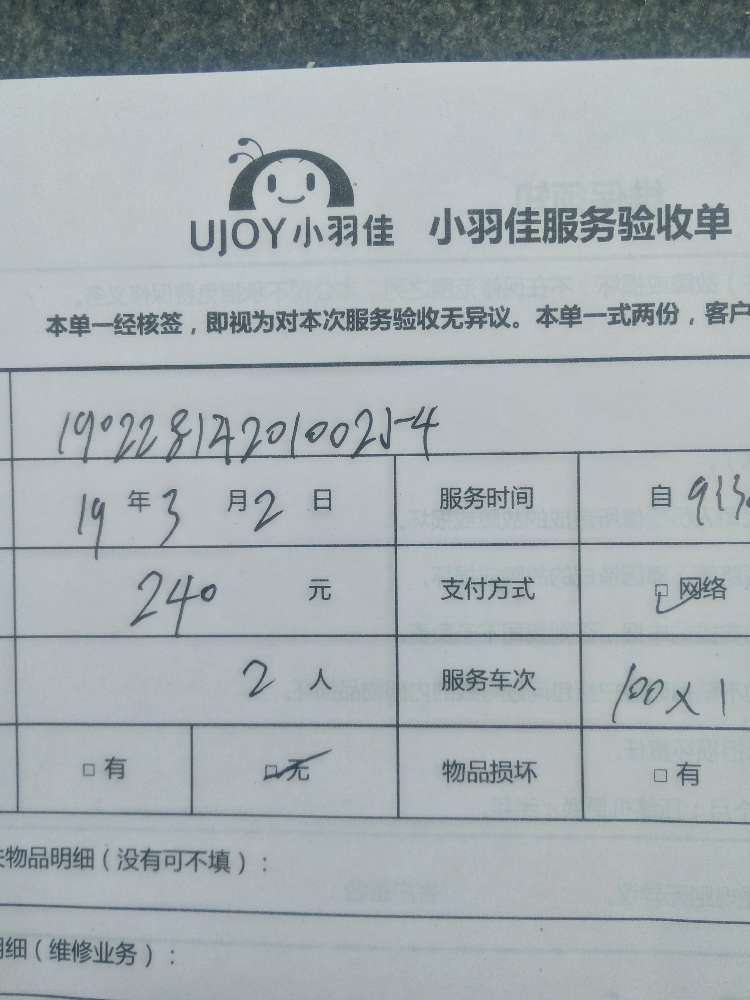 UJOY小羽佳 小羽佳服务验收单
本单一经核签，即视为对本次服务验收无异议。本单一式两份，客户
19 年 3 月 2 日 服务时间 自
240 元 支付方式 □ 网络
2 人 服务车次 100×1
□ 有 □ 无 物品损坏 □ 有
物品明细（没有可不填）：
细（维修业务）：